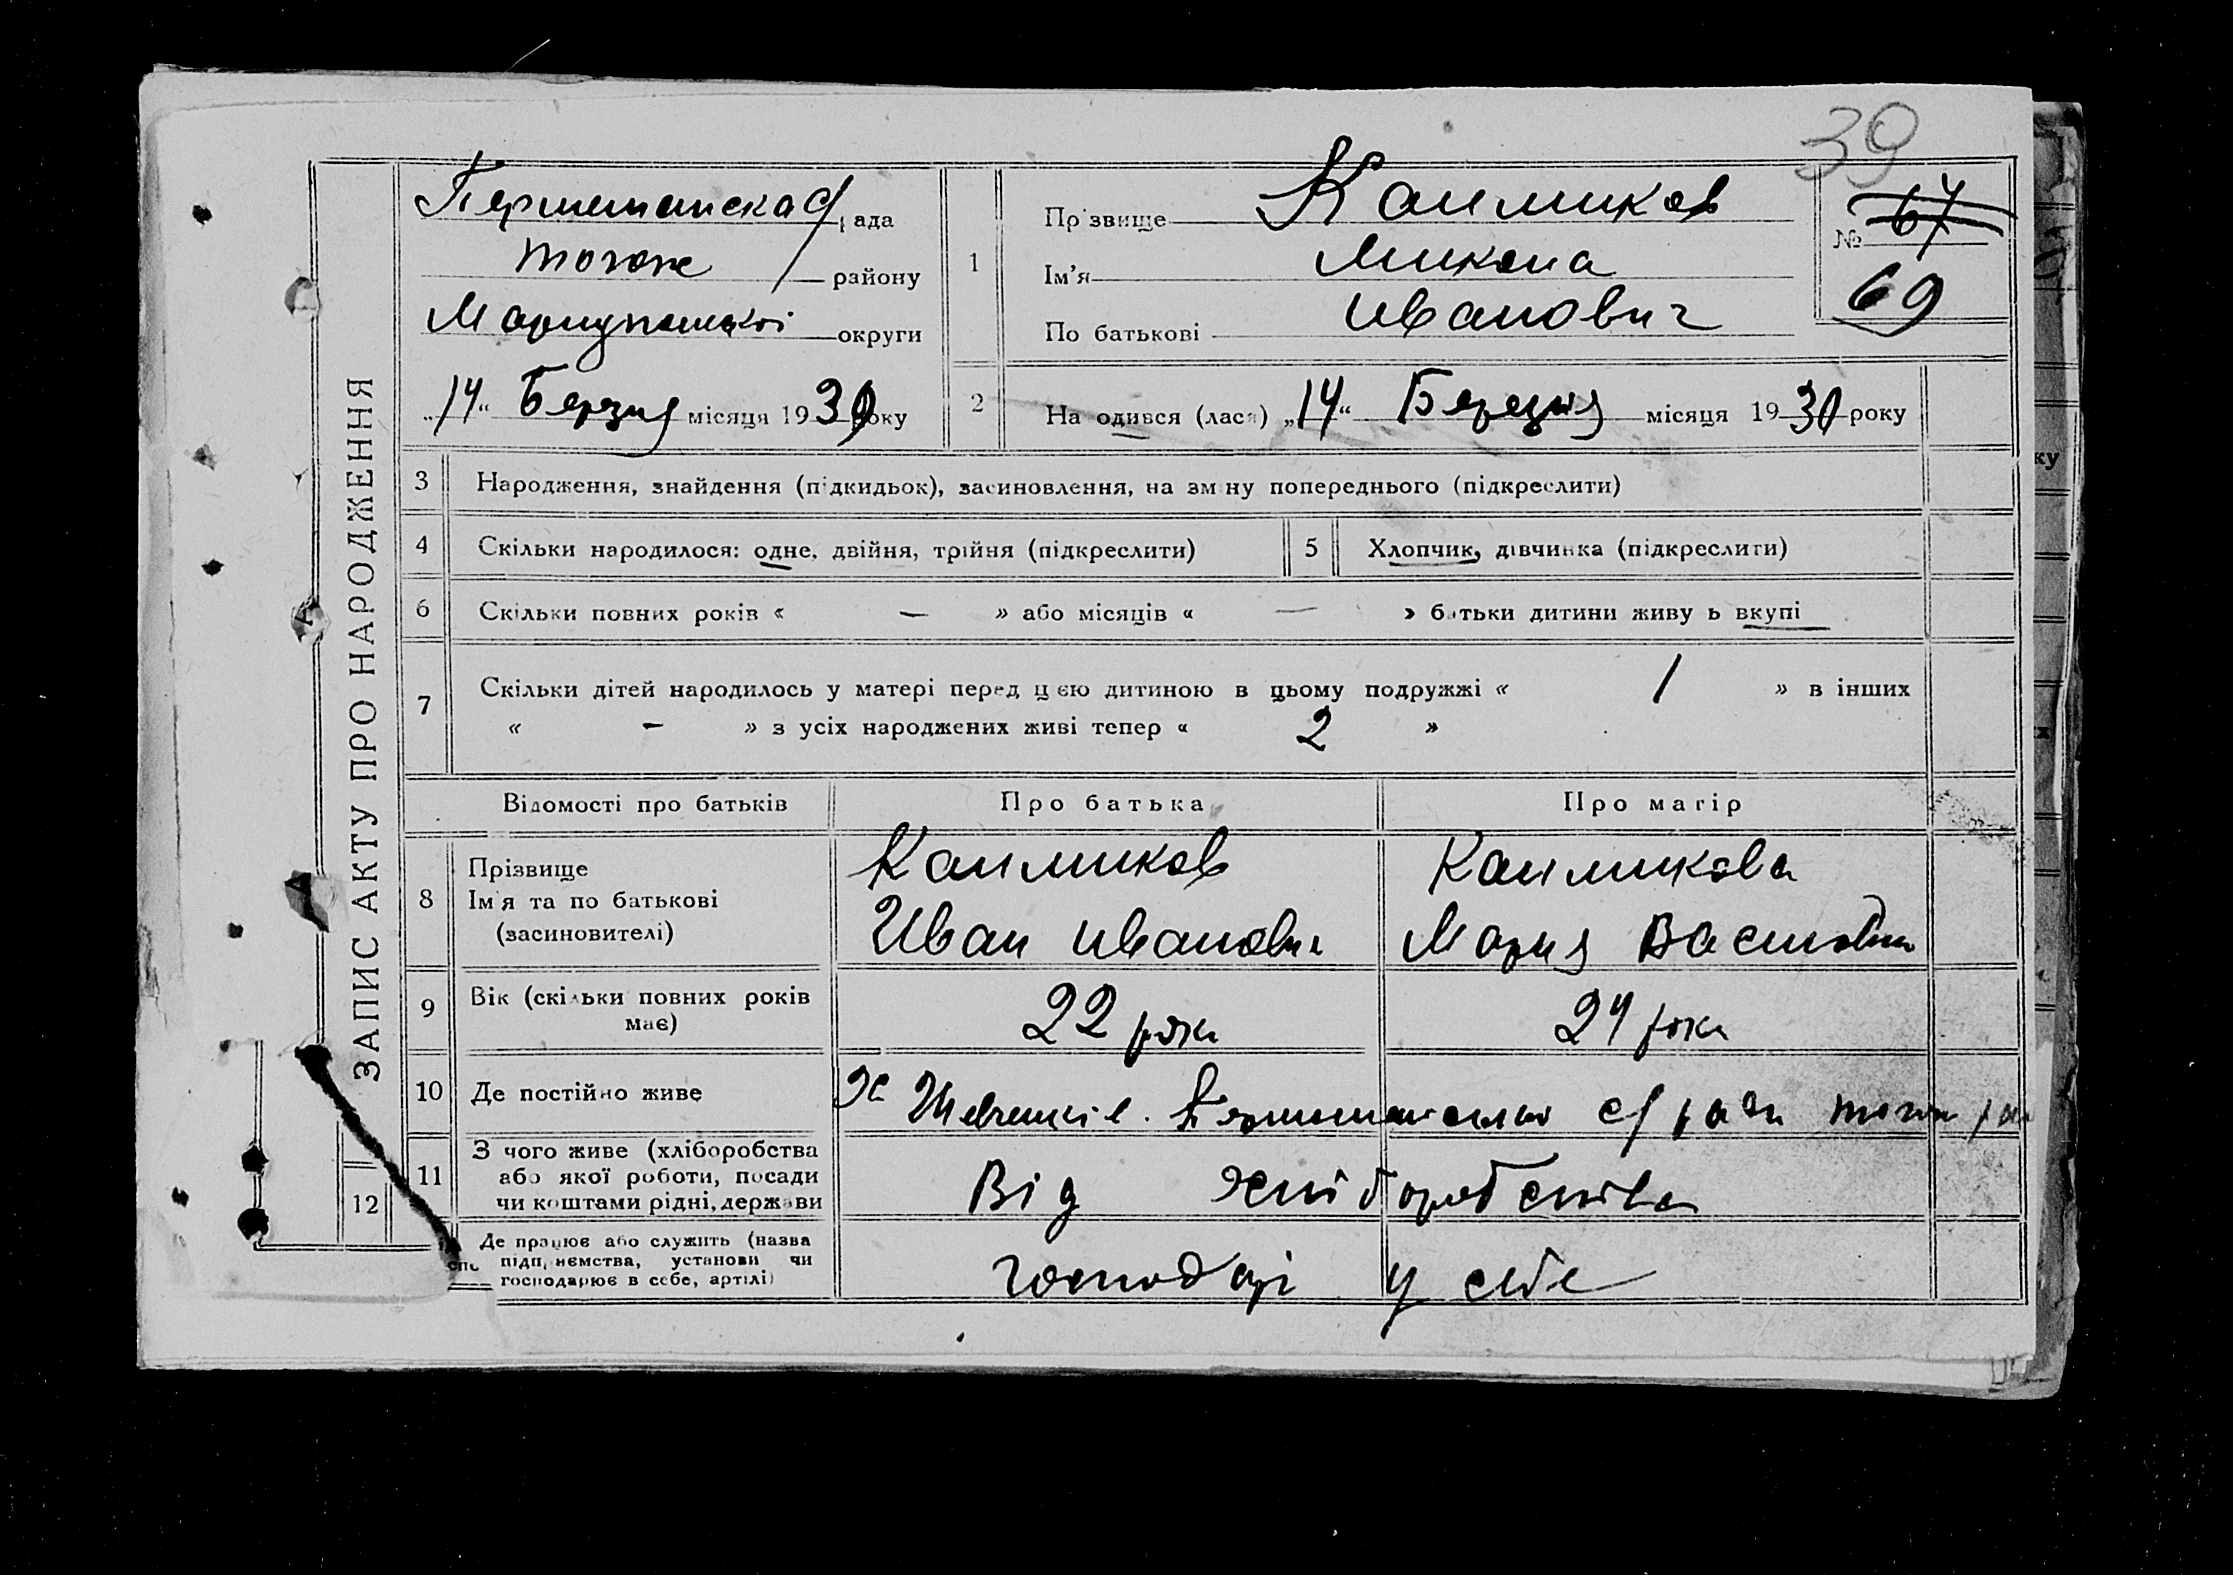 39
Першотравнева с/рада
тогож району
Маріупольскої округи
„14“ Березня місяця 1930 року
1
Прізвище Калмиков
Ім'я Микола
По батькові Иванович
№ 67
69
2
Народився (лася) „14“ Березня місяця 1930 року
ЗАПИС АКТУ ПРО НАРОДЖЕННЯ
3 Народження, знайдення (підкидьок), засиновлення, на зміну попереднього (підкреслити)
4 Скільки народилося: одне, двійня, трійня (підкреслити)
5 Хлопчик, дівчинка (підкреслити)
6 Скільки повних років « — » або місяців « — » батьки дитини живуть вкупі
7 Скільки дітей народилось у матері перед цією дитиною в цьому подружжі « 1 » в інших
« - » з усіх народжених живі тепер « 2 »
Відомості про батьків Про батька Про матір
8 Прізвище Калмиков Калмикова
Ім'я та по батькові Иван Иванович Мария Василовна
(засиновителі)
9 Вік (скільки повних років має) 22 роки 24 роки
10 Де постійно живе Х Шевченків. с/ради тогож рай
11 З чого живе (хліборобства
або якої роботи, посади
чи коштами рідні, держави Від хліборобства
12
Де працює або служить (назва
підприємства, установи чи
господарює в себе, артілі) господарі у себе